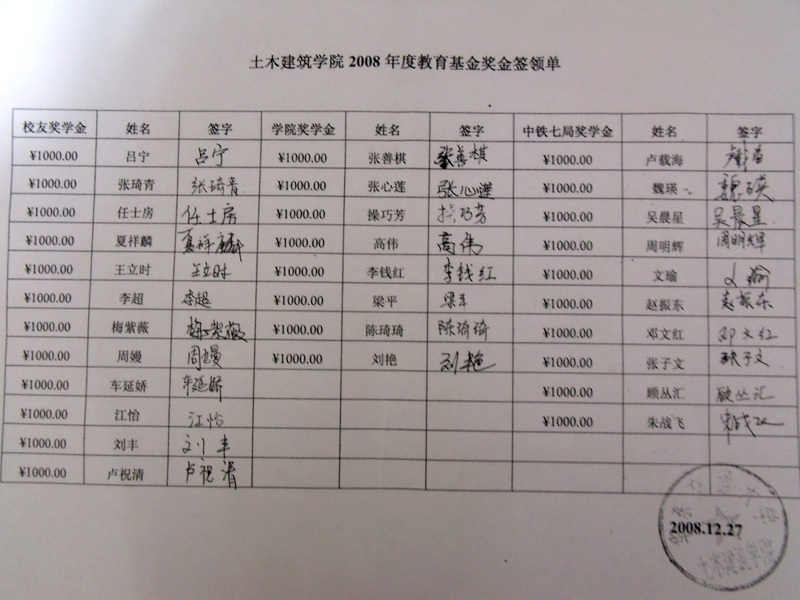 土木建筑学院 2008 年度教育基金奖金签领单
校友奖学金 姓名 签字 学院奖学金 姓名 签字 中铁七局奖学金 姓名 签字
¥1000.00 吕宁 吕宁 ¥1000.00 张善棋 张善棋 ¥1000.00 卢载海
¥1000.00 张琦青 张琦青 ¥1000.00 张心莲 张心莲 ¥1000.00 魏瑛 魏瑛
¥1000.00 任士房 任士房 ¥1000.00 操巧芳 操巧芳 ¥1000.00 吴晨星 吴晨星
¥1000.00 夏祥麟 夏祥麟 ¥1000.00 高伟 高伟 ¥1000.00 周明辉 周明辉
¥1000.00 王立时 王立时 ¥1000.00 李钱红 李钱红 ¥1000.00 文瑜 文瑜
¥1000.00 李超 李超 ¥1000.00 梁平 梁平 ¥1000.00 赵振东 赵振东
¥1000.00 梅紫薇 梅紫薇 ¥1000.00 陈琦琦 陈琦琦 ¥1000.00 邓文红 邓文红
¥1000.00 周嫚 周嫚 ¥1000.00 刘艳 刘艳 ¥1000.00 张子文 张子文
¥1000.00 车延娇 车延娇 ¥1000.00 顾丛汇 顾丛汇
¥1000.00 江怡 江怡 ¥1000.00 朱战飞
¥1000.00 刘丰 刘丰
¥1000.00 卢祝清 卢祝清
2008.12.27
土木建筑学院